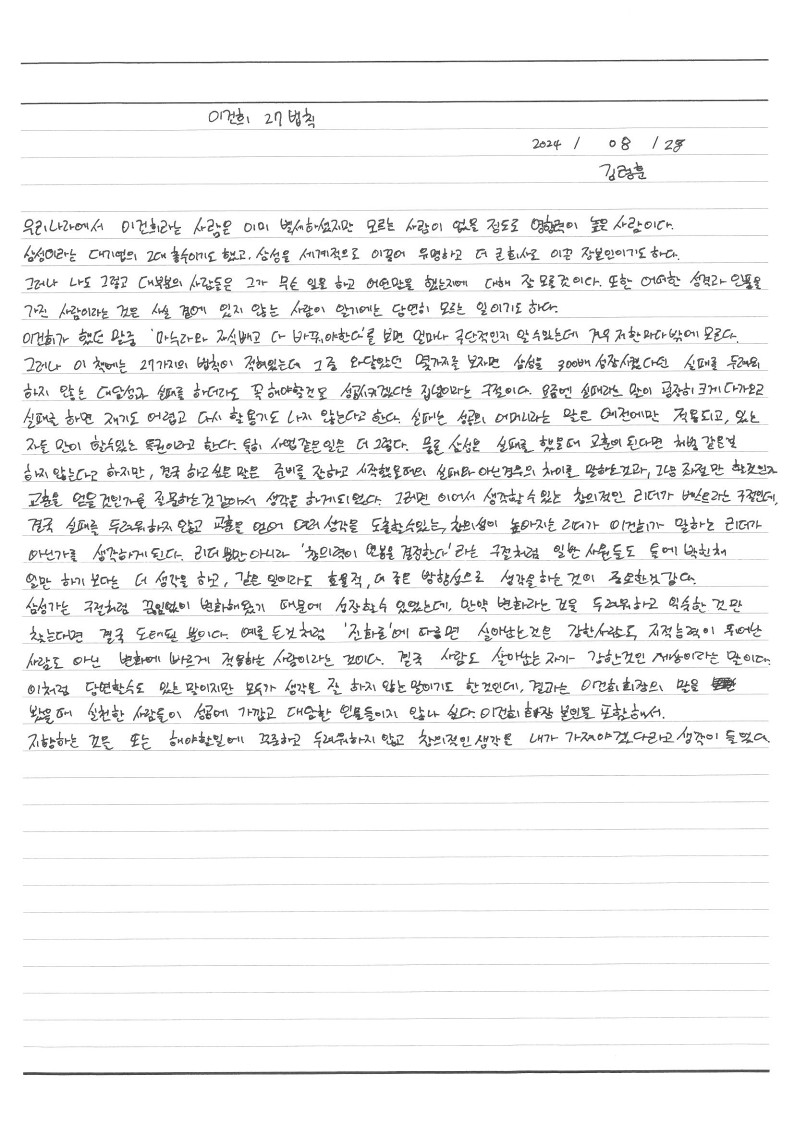 이건희 27 법칙
2024 / 08 / 28
김명훈
우리나라에서 이건희라는 사람은 이미 별세하셨지만 모르는 사람이 없을 정도로 영향력이 높은 사람이다.
삼성이라는 대기업의 2대 총수이기도 했고, 삼성을 세계적으로 이끌어 유명하고 더 큰 회사로 이끈 장본인이기도 하다.
그러나 나도 그렇고 대부분의 사람들은 그가 무슨 일을 하고 어떤말을 했는지에 대해 잘 모를것이다. 또한 어떠한 성격과 인품을
가진 사람이라는 것은 사실 곁에 있지 않는 사람이 알기에는 당연히 모르는 일이기도 하다.
이건희가 했던 말중 '마누라와 자식빼고 다 바꿔야한다'를 보면 얼마나 극단적인지 알수있는데 겨우 저 한마디 밖에 모른다.
그러나 이 책에는 27가지의 법칙이 적혀있는데 그 중 와닿았던 몇가지를 보자면 삼성을 300배 성장시켰다던 실패를 두려워
하지 않는 대담성과 실패를 하더라도 꼭 해야할것은 성공시키겠다는 집념이라는 구절이다. 요즘엔 실패라는 말이 굉장히 크게 다가오고
실패를 하면 재기도 어렵고 다시 할 용기도 나지 않는다고 한다. 실패는 성공의 어머니라는 말은 예전에만 적용되고, 있는
자들 만이 할수있는 특권이라고 한다. 특히 사업같은일은 더 그렇다. 물론 삼성은 실패를 했을때 교훈이 된다면 처벌 같은걸
하지 않는다고 하지만, 결국 하고 싶은 말은 준비를 잘하고 시작했을때의 실패와 아닌경우의 차이를 말하는것과, 그냥 좌절만 할것인지
교훈을 얻을것인가를 질문하는것 같아서 생각을 하게 되었다. 그러면 이어서 생각할수 있는 창의적인 리더가 베스트라는 구절인데,
결국 실패를 두려워하지 않고 교훈을 얻어 여러 생각을 도출할수있는, 창의성이 높아지는 리더가 이건희가 말하는 리더가
아닌가를 생각하게 된다. 리더 뿐만 아니라 '창의력이 연봉을 결정한다' 라는 구절처럼 일반 사원들도 틀에 박힌채
일만 하기 보다는 더 생각을 하고, 같은 일이라도 효율적, 더 좋은 방향성으로 생각을하는 것이 중요한것 같다.
삼성가는 구절처럼 끊임없이 변화해왔기 때문에 성장할수 있었는데, 만약 변화라는 것을 두려워하고 익숙한 것만
찾는다면 결국 도태될 뿐이다. 예를 든것처럼 '진화론'에 따르면 살아남는것은 강한사람도, 지적능력이 뛰어난
사람도 아닌 변화에 빠르게 적응하는 사람이라는 것이다. 결국 사람도 살아남는 자가 강한것인 세상이라는 말이다.
이처럼 당연할수도 있는 말이지만 모두가 생각을 잘 하지 않는 말이기도 한것인데, 결과는 이건희 회장의 말을
봤을때 실천한 사람들이 성공에 가깝고 대단한 인물들이지 않나 싶다. 이건희 회장 본인을 포함해서.
지향하는 것을 또는 해야할일에 꾸준하고 두려워하지 않고 창의적인 생각을 내가 가져야겠다라고 생각이 들었다.